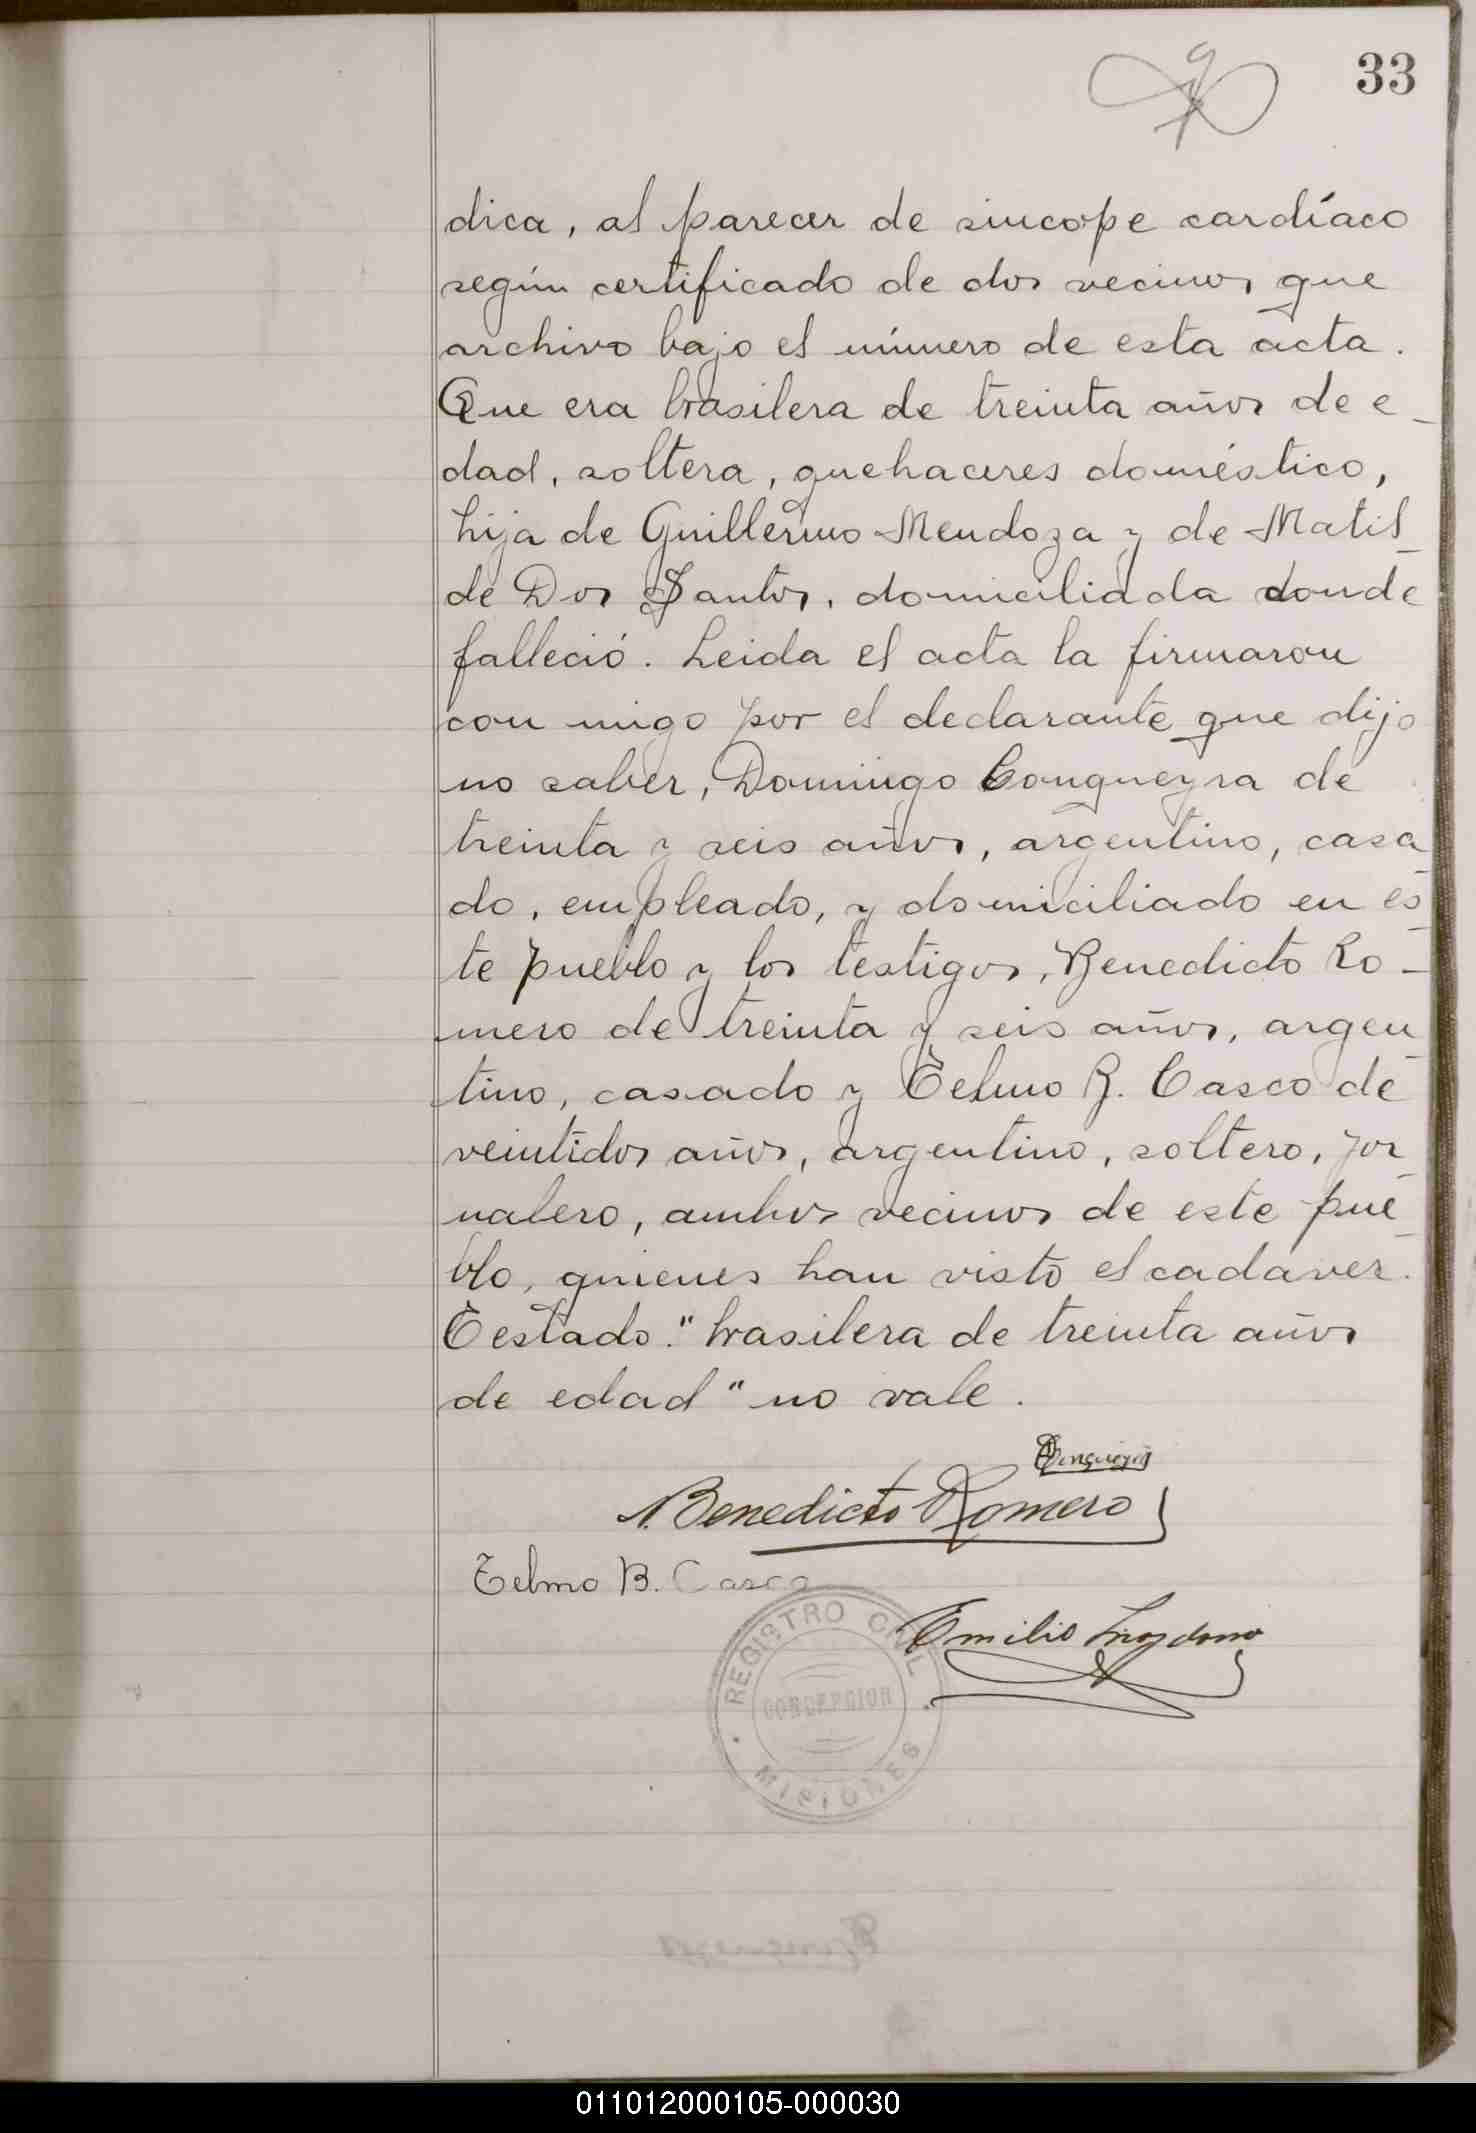 33
dica, al parecer de sincope cardíaco
según certificado de dos vecinos que
archivo bajo el número de esta acta.
Que era brasilera de treinta años de e-
dad, soltera, quehaceres doméstico,
hija de Guillermo Mendoza y de Matil-
de Dos Santos, domiciliada donde
falleció. Leida el acta la firmaron
con migo por el declarante que dijo
no saber, Domingo Congueyra de
treinta y seis años, argentino, casa-
do, empleado, y domiciliado en es-
te pueblo y los testigos, Benedicto Ro-
mero de treinta y seis años, argen-
tino, casado y Telmo B. Casco de
veintidos años, argentino, soltero, jor-
nalero, ambos vecinos de este pue-
blo, quienes han visto el cadaver.
Testado: "brasilera de treinta años
de edad" no vale.
Congueyra
Benedicto Romero
Telmo B. Casco
Emilio
REGISTRO CIVIL
CONCEPCION
MISIONES
011012000105-000030